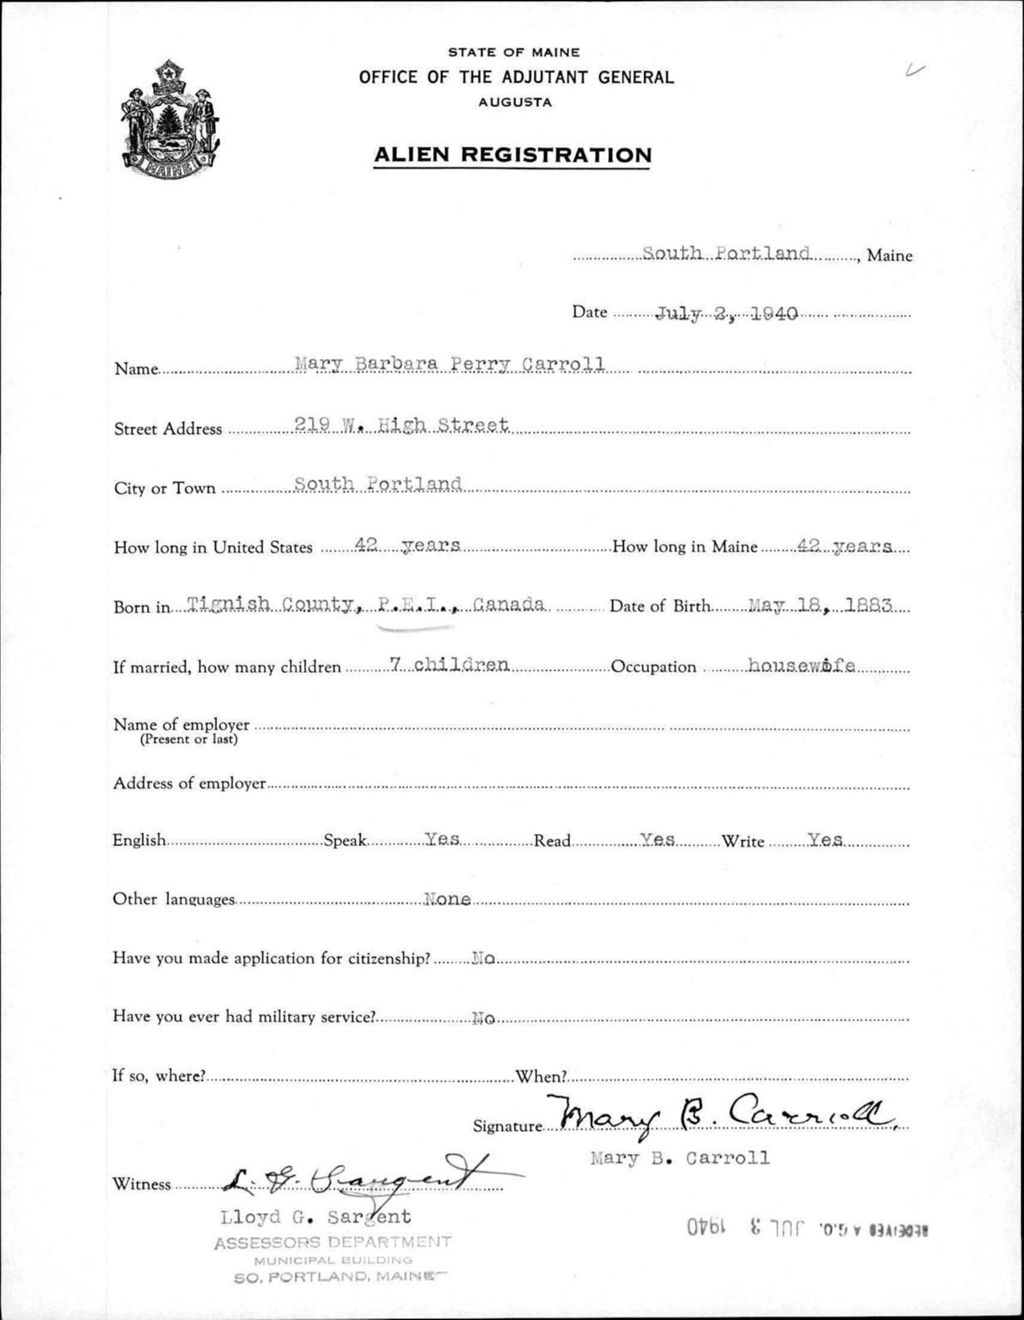 STATE OF MAINE
OFFICE OF THE ADJUTANT GENERAL
AUGUSTA
ALIEN REGISTRATION
MAINE
South Portland, Maine
Date July 2, 1940
Name Mary Barbara Perry Carroll
Street Address 219 W. High Street
City or Town South Portland
How long in United States 42 years How long in Maine 42 years
Born in Tignish County, P.E.I., Canada Date of Birth May 18, 1883
If married, how many children 7 children Occupation housewife
Name of employer
(Present or last)
Address of employer
English Speak Yes Read Yes Write Yes
Other languages None
Have you made application for citizenship? No
Have you ever had military service? No
If so, where? When?
Signature Mary B. Carroll
Mary B. Carroll
Witness L. G. Sargent
Lloyd G. Sargent
ASSESSORS DEPARTMENT
MUNICIPAL BUILDING
SO. PORTLAND, MAINE
RECEIVED A.G.O. JUL 3 1940